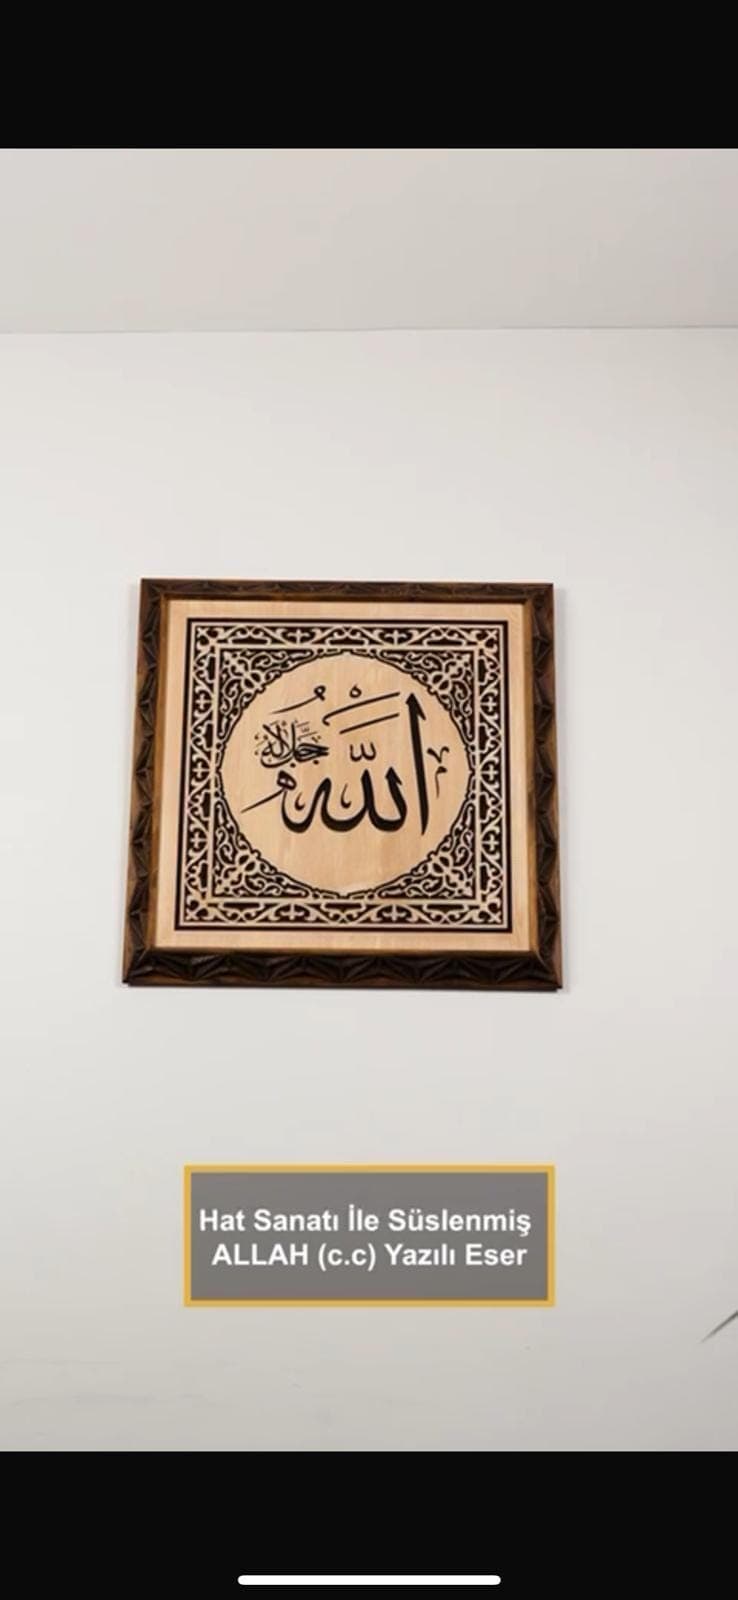 الله
جل جلاله
Hat Sanatı İle Süslenmiş
ALLAH (c.c) Yazılı Eser